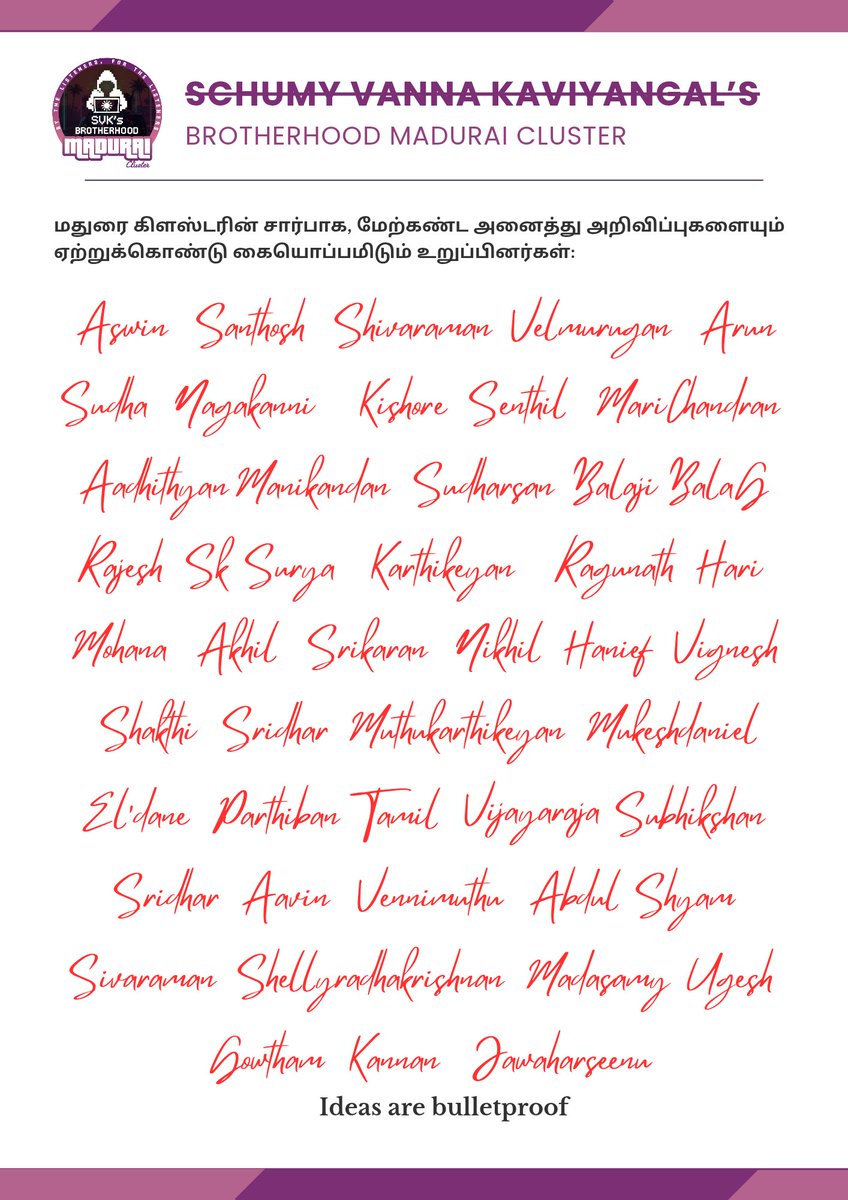 BY THE LISTENERS, FOR THE LISTENERS
SVK's
BROTHERHOOD
MADURAI
Cluster
SCHUMY VANNA KAVIYANGAL'S
BROTHERHOOD MADURAI CLUSTER
மதுரை கிளஸ்டரின் சார்பாக, மேற்கண்ட அனைத்து அறிவிப்புகளையும்
ஏற்றுக்கொண்டு கையொப்பமிடும் உறுப்பினர்கள்:
Aswin Santhosh Shivaraman Velmurugan Arun
Sudha Nagakanni Kishore Senthil MariChandran
Aadhithyan Manikandan Sudharsan Balaji BalaG
Rajesh Sk Surya Karthikeyan Ragunath Hari
Mohana Akhil Srikaran Nikhil Hanief Vignesh
Shakthi Sridhar Muthukarthikeyan Mukeshdaniel
El'dane Parthiban Tamil Vijayaraja Subhikshan
Sridhar Aavin Vennimuthu Abdul Shyam
Sivaraman Shellyradhakrishnan Madasamy Ugesh
Gowtham Kannan Jawaharseenu
Ideas are bulletproof